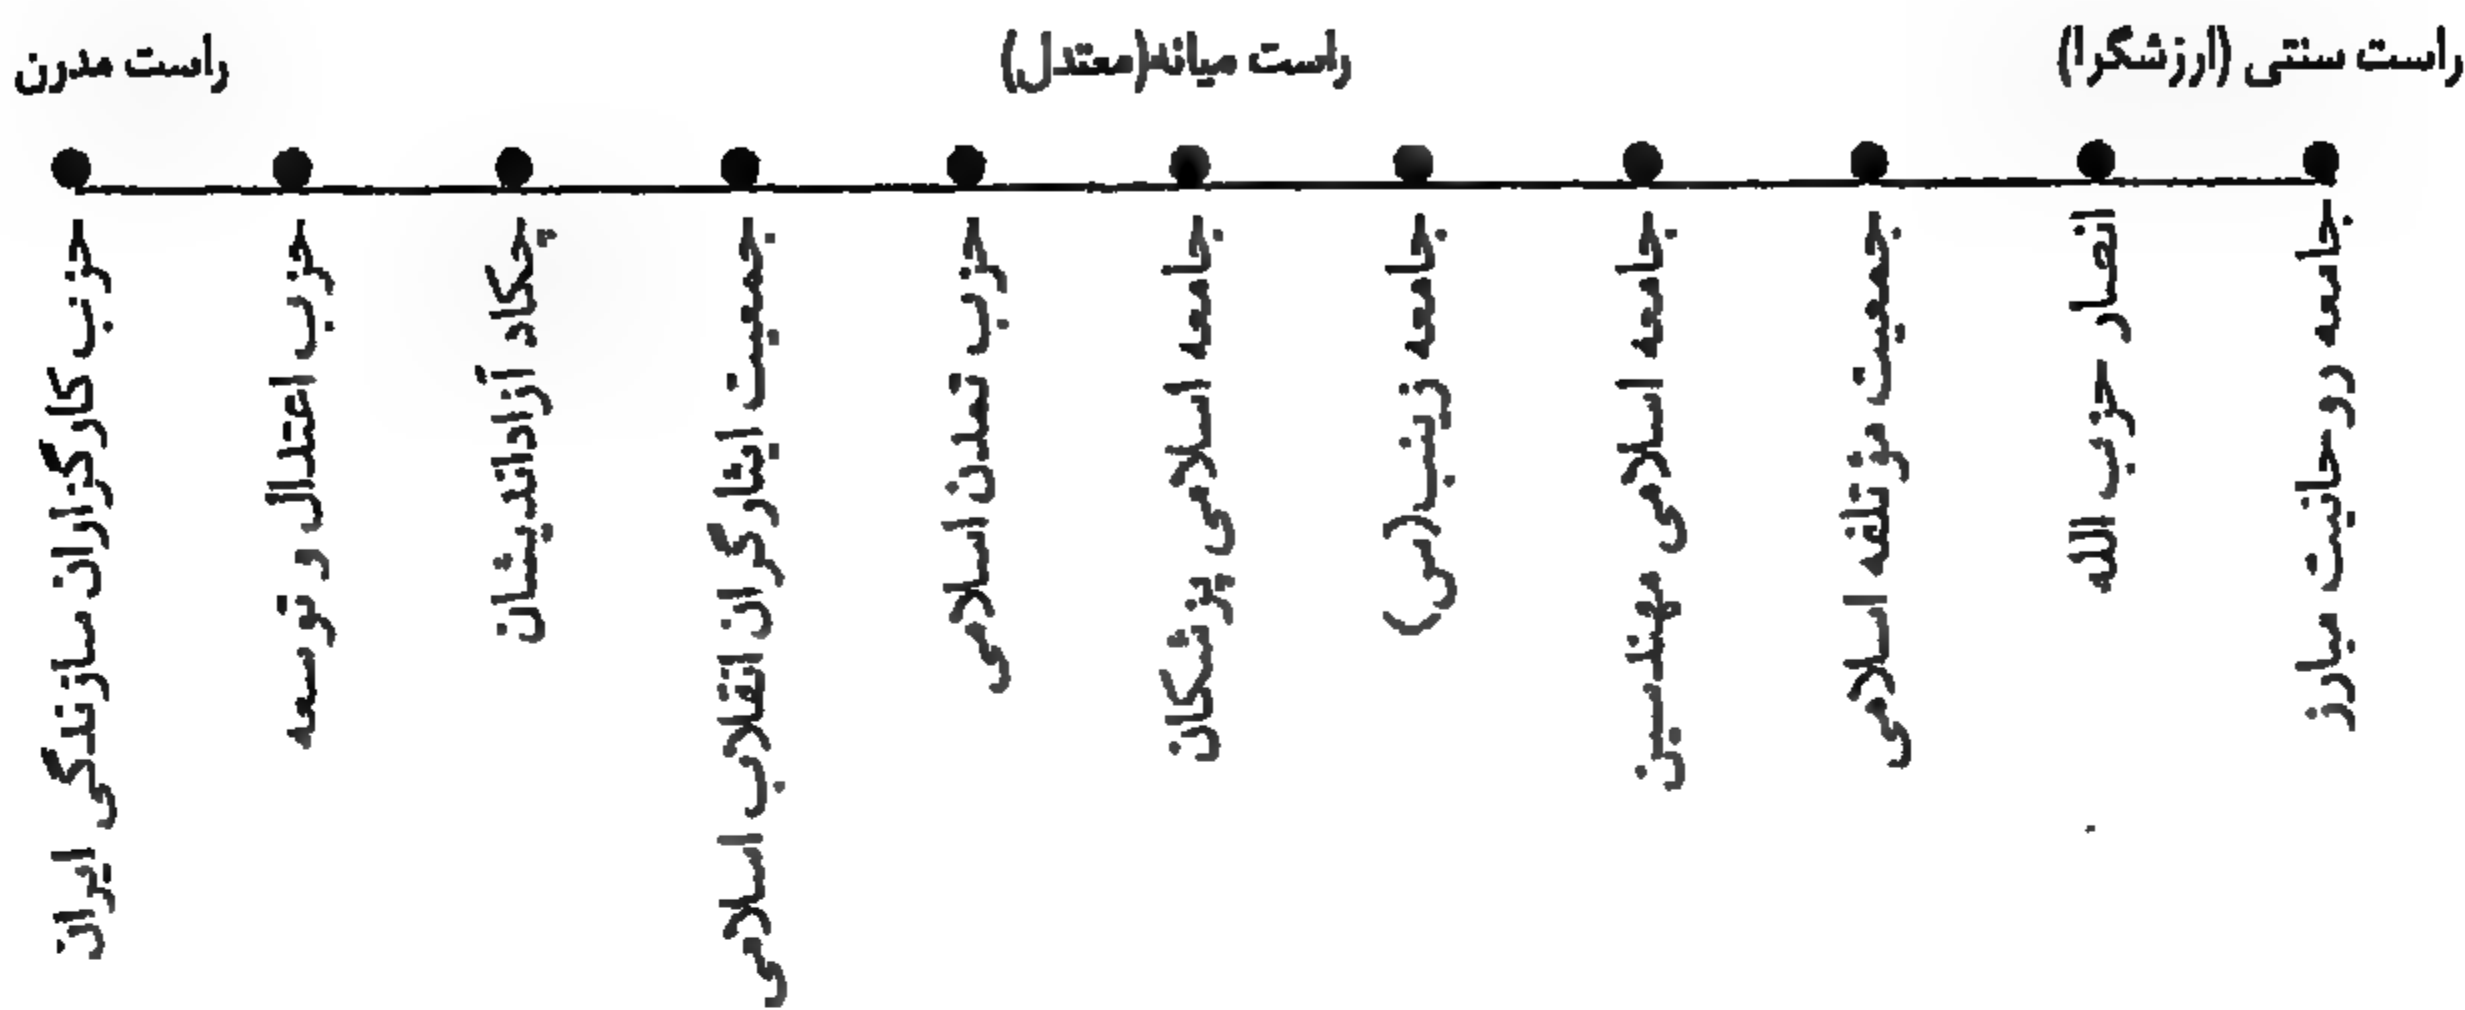 راست سنتی (ارزشگرا)
راست میانه(معتدل)
راست مدرن
جامعه روحانیت مبارز
انصار حزب الله
جمعیت مؤتلفه اسلامی
جامعه اسلامی مهندسین
جامعه زینب(س)
جامعه اسلامی پزشکان
حزب تمدن اسلامی
جمعیت ایثارگران انقلاب اسلامی
چکاد آزاداندیشان
حزب اعتدال و توسعه
حزب کارگزاران سازندگی ایران